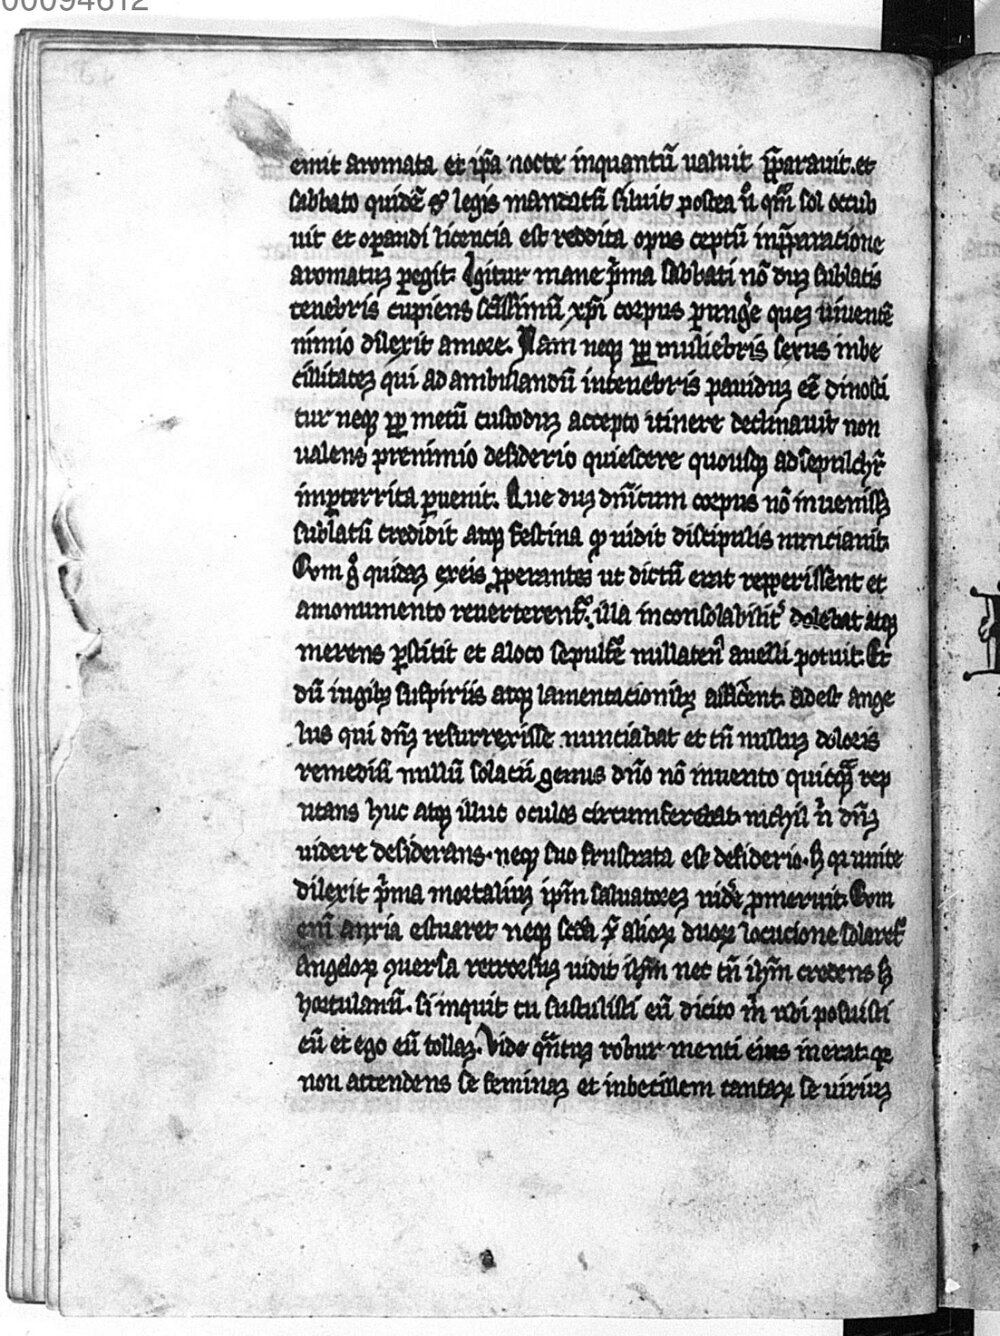 00094612
emit aromata et ip̃a nocte inquantũ ualuit p̃parauit. et
sabbato quidẽ legis mandatũ siluit postea ũ qm̃ sol occub
uit et operandi licencia est reddita opus ceptũ inp̃paracione
aromatuꝫ ꝑegit. Igitur mane p̃ma sabbati nõ duꝫ sublatis
tenebris cupiens sc̃issimũ xp̃i corpus ꝑungẽ queꝫ uiuentẽ
nimio dilexit amore. Nam neqꝫ pp̃ muliebris sexus inbe
cillitateꝫ qui ad ambulandũ intenebris pauiduꝫ eẽ dinosci
tur neqꝫ pp̃ metũ custoduꝫ accepto itinere declinauit non
ualens prenimio desiderio quiescere quousqꝫ adsepulchr̃
imꝑterrita ꝑuenit. Que duꝫ dñicum corpus nõ inuenissꝫ
sublatũ credidit atqꝫ festina qͩ uidit discipulis nunciauit.
Cum g̊ quidaꝫ exeis ꝓperantes ut dictũ erat repperissent et
amonumento reuerterent᷑. illa inconsolabilit᷑ dolebat atqꝫ
merens ꝑstitit et aloco sepult᷑e nullaten᷑ auelli potuit. Et
dũ iugibꝫ suspiriis atqꝫ lamentacionibꝫ adest ange
lus qui dñꝫ resurrexisse nunciabat et tñ nulluꝫ doloris
remediũ nullũ solacii genus dño nõ inuento quicq̃ rep
utans huc atqꝫ illuc oculos circumferebat. nichil ñ dñꝫ
uidere desiderans. neqꝫ suo frustrata est desiderio. sꝫ qr unice
dilexit p̃ma mortaliuꝫ ip̃m saluatoreꝫ uidẽ ꝓmeruit. Cum
eni᷑ anxia estuaret neqꝫ alioꝝ duoꝝ locucione solaret᷑
Angeloꝝ ꝯuersa retrorsuꝫ uidit ih̃m nec tñ ih̃m credens sꝫ
hortulanũ. si inquit tu sustulisti eũ dicito m̊ ubi posuisti
eũ et ego eũ tollaꝫ. Vide qñtuꝫ robur menti eius inerat. qꝫ
non attendens se feminaꝫ et inbecillem tantaꝝ se uiriuꝫ